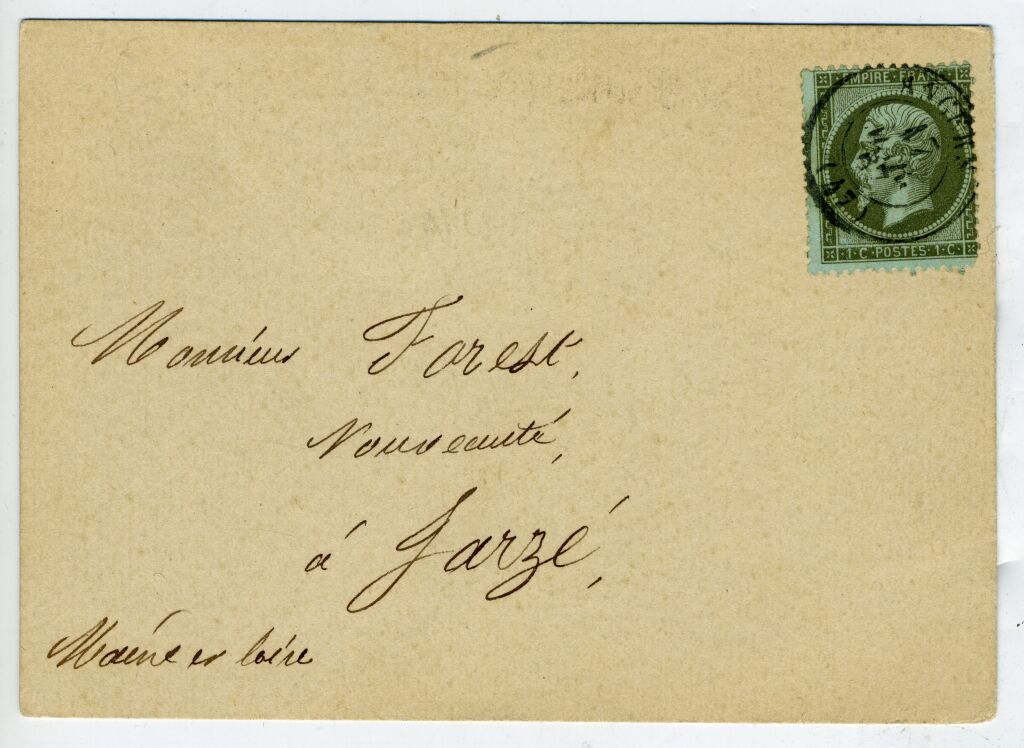 EMPIRE FRANC
ANGERS
(47)
1·C·POSTES·1·C·
Monsieur Forest,
Nouveauté,
à Jarzé,
Maine et loire